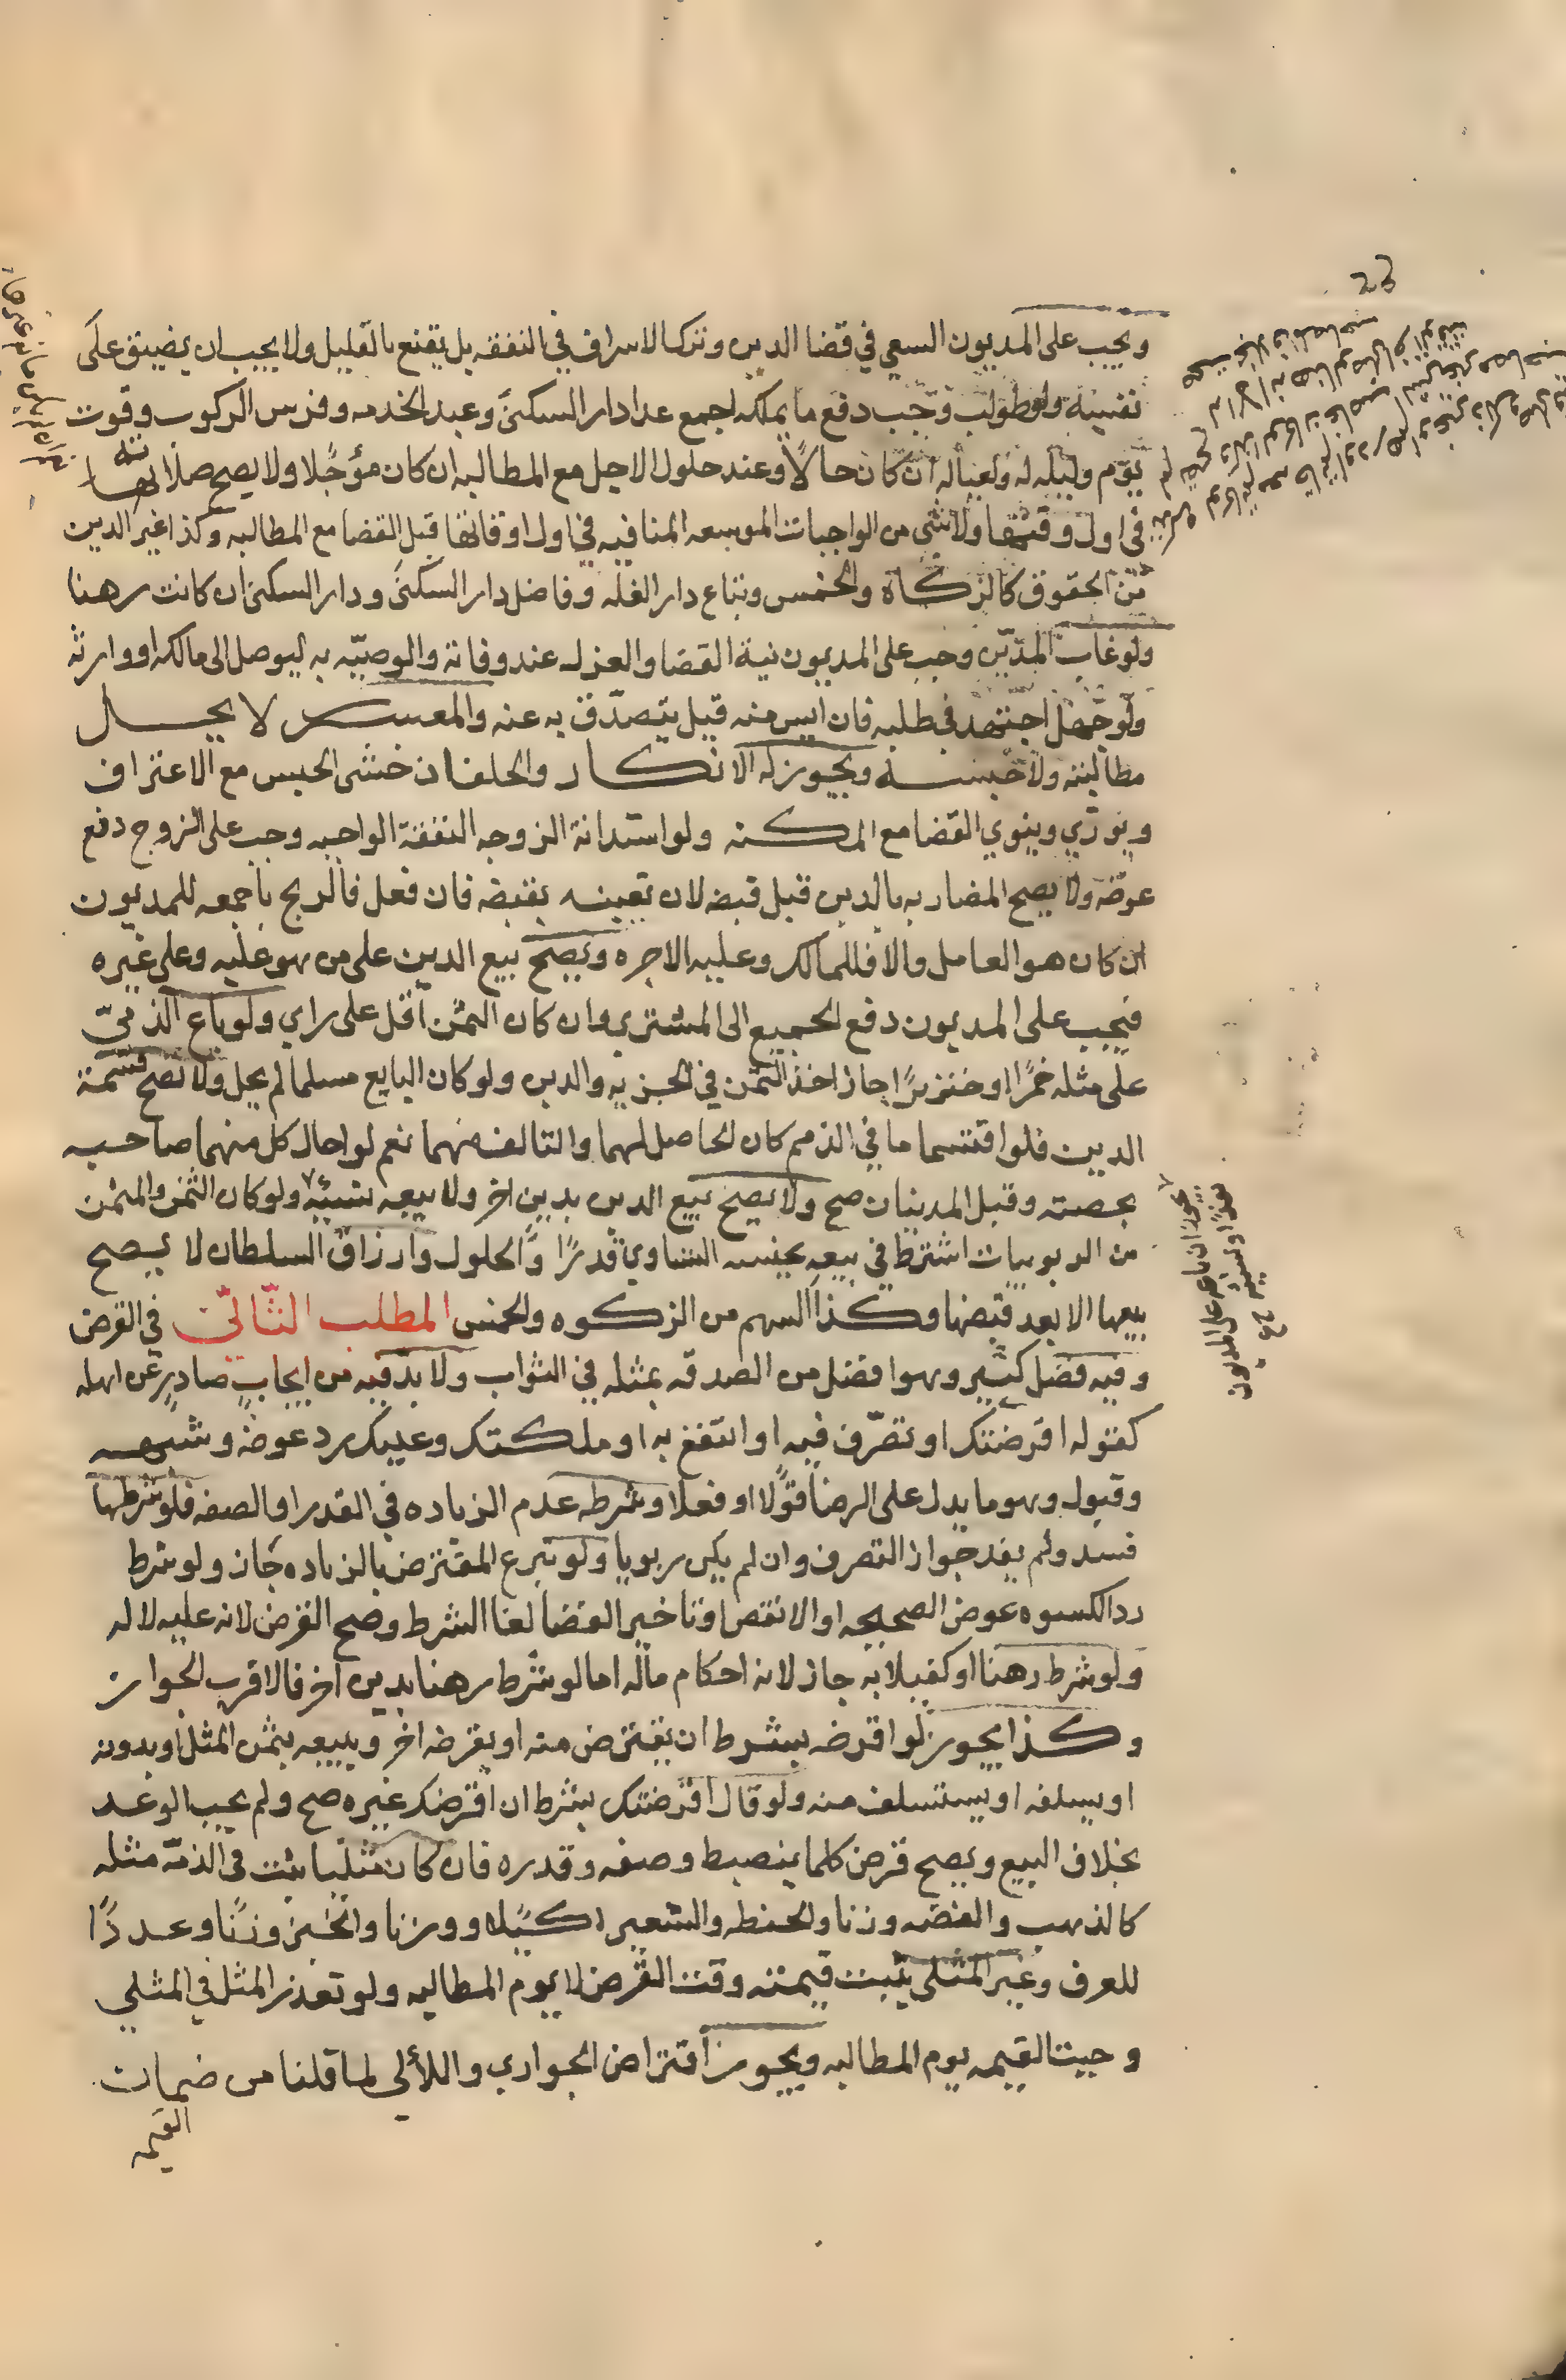 23
ويجب على المديون السعي في قضا الدين وترك الاسراف في النفقه بل يقنع بالقليل ولا يجب ان يضيق على
نفسه ولو طولب وجب دفع ما يملكه اجمع عدا دار السكنى وعبد الخدمه وفرس الركوب وقوت
يوم وليله له ولعياله ان كان حالا وعند حلول الاجل مع المطالبه ان كان مؤجلا ولا يصح صلاته
في اول وقتها ولا شي من الواجبات الموسعه المنافيه في اول اوقاتها قبل القضا مع المطالبه وكذا غير الدين
من الحقوق كالزكاة والخمس وتباع دار الغله وفاضل دار السكنى ودار السكنى ان كانت رهنا
ولو غاب المدين وجب على المديون نية القضا والعزل عند وفاته والوصيّه به ليوصل الى مالكه او وارثه
ولو جهل اجتهد في طلبه فان ايس منه قيل يتصدّق به عنه والمعسر لا يحل
مطالبته ولا حبسه ويجوز له الانكار والحلف ان خشى الحبس مع الاعتراف
ويورّي وينوي القضا مع المكنه ولو استدانة الزوجه النفقة الواجبه وجب على الزوج دفع
عوضه ولا يصح المضاربه بالدين قبل قبضه لان تعينه بقبضه فان فعل فالربح باجمعه للمديون
ان كان هو العامل والا فللمالك وعليه الاجره ويصح بيع الدين على من هو عليه وعلى غيره
فيجب على المديون دفع الجميع الى المشتري وان كان الثمن اقل على راي ولو باع الذميّ
على مثله خمرًا او خنزيرًا جاز اخذ الثمن في الجزيه والدين ولو كان البايع مسلما لم يحل ولا تصح قسمة
الدين فلو اقتسما ما في الذمم كان الحاصل لهما والتالف منهما نعم لو احال كل منهما صاحبه
بحصته وقبل المدينان صح ولا يصح بيع الدين بدين اخر ولا بيعه نسيئه ولو كان الثمن والمثمن
من الربويات اشترط في بيعه بجنسه التساوي قدرًا والحلول وارزاق السلطان لا يصح
بيعها الا بعد قبضها وكذا السهم من الزكوه والخمس المطلب الثاني في القرض
وفيه فضل كثير وهو افضل من الصدقه بمثله في الثواب ولا بد فيه من ايجاب صادر عن اهله
كقوله اقرضتك او تصرّف فيه او انتفع به او ملكتك وعليك رد عوضه وشبهه
وقبول وهو ما يدل على الرضا قولًا او فعلا وشرطه عدم الزياده في القدر او الصفه فلو شرطها
فسد ولم يفد جواز التصرف وان لم يكن ربويا ولو تبرع المقترض بالزياده جاز ولو شرط
رد المكسوره عوض الصحيحه او الانقص او تاخير القضا لغا الشرط وصح القرض لانه عليه لا له
ولو شرط رهنا او كفيلا به جاز لانه احكام ماله اما لو شرط رهنا بدين اخر فالاقرب الجواز
وكذا يجوز لو اقرضه بشرط ان يقترض منه او يقرضه اخر ويبيعه بثمن المثل او بدونه
او يسلفه او يستسلف منه ولو قال اقرضتك بشرط ان اقرضك غيره صح ولم يجب الوعد
بخلاف البيع ويصح قرض كلما ينضبط وصفه وقدره فان كان مثليا ثبت في الذمّة مثله
كالذهب والفضه وزنا والحنطه والشعير كيلا ووزنا والخبز وزنًا وعددًا
للعرف وغير المثلي يثبت قيمته وقت القرض لا يوم المطالبه ولو تعذر المثل في المثلي
وجبت القيمه يوم المطالبه ويجوز اقتراض الجواري واللألي لما قلنا من ضمان
القيمه
يجوز ان باعه على المديون
نقدًا او نسيه